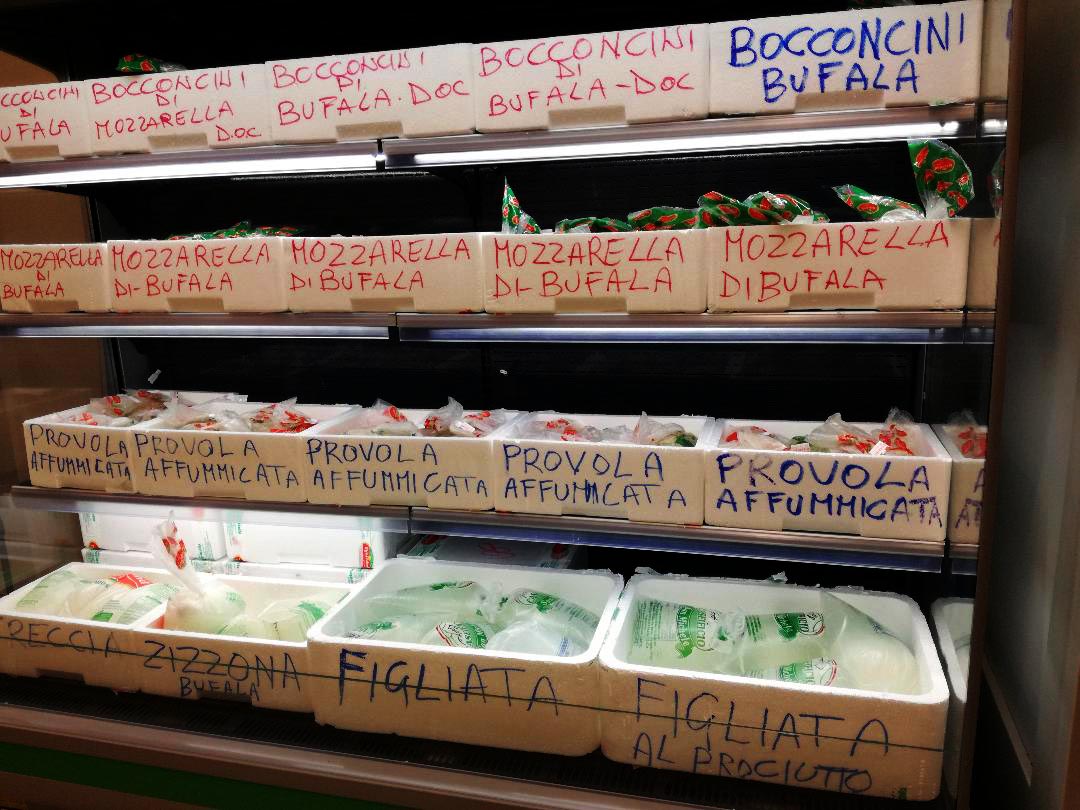 BOCCONCINI
DI
BUFALA
BOCCONCINI
DI
MOZZARELLA
D.OC
BOCCONCINI
DI
BUFALA. DOC
BOCCONCINI
DI
BUFALA-DOC
BOCCONCINI
BUFALA
MOZZARELLA
DI
BUFALA
MOZZARELLA
DI-BUFALA
MOZZARELLA
DI BUFALA
MOZZARELLA
DI-BUFALA
MOZZARELLA
DI BUFALA
PROVOLA
AFFUMMICATA
PROVOLA
AFFUMMICATA
PROVOLA
AFFUMMICATA
PROVOLA
AFFUMMICATA
PROVOLA
AFFUMMICATA
TRECCIA
ZIZZONA
BUFALA
FIGLIATA
FIGLIATA
AL PROCIUTTO